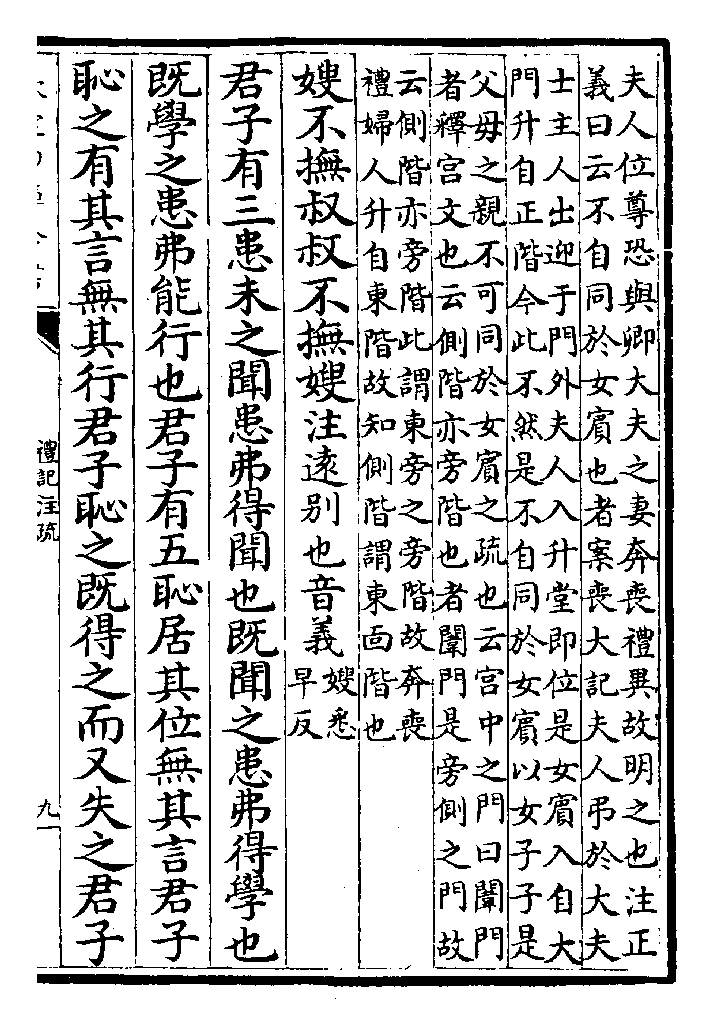 夫人位尊恐與卿大夫之妻奔喪禮異故明之也注正
義曰云不自同於女賓也者案喪大記夫人弔於大夫
士主人出迎于門外夫人入升堂即位是女賓入自大
門升自正階今此不然是不自同於女賓以女子子是
父母之親不可同於女賓之疏也云宮中之門曰闈門
者釋宮文也云側階亦旁階也者闈門是旁側之門故
云側階亦旁階此謂東旁之旁階故奔喪
禮婦人升自東階故知側階謂東面階也
嫂不撫叔叔不撫嫂注逺别也音義嫂悉早反
君子有三患未之聞患弗得聞也既聞之患弗得學也
既學之患弗能行也君子有五恥居其位無其言君子
恥之有其言無其行君子恥之既得之而又失之君子
禮記注疏
九